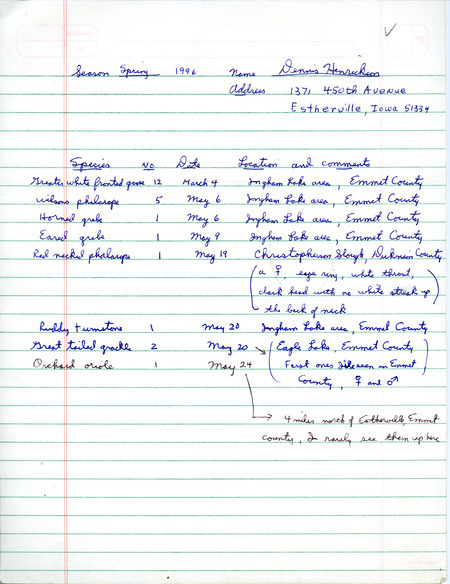 Season Spring 1996 Name Dennis Henricksen
Address 1371 450th Avenue
Estherville, Iowa 51334
Species No Date Location and comments
Greater white fronted goose 12 March 4 Ingham Lake area, Emmet County
Wilsons phalarope 5 May 6 Ingham Lake area, Emmet County
Horned grebe 1 May 6 Ingham Lake area, Emmet County
Eared grebe 1 May 9 Ingham Lake area, Emmet County
Red necked phalarope 1 May 19 Christopherson Slough, Dickinson County
(a ♀, eye ring, white throat,
dark head with no white streak up
the back of neck)
Ruddy turnstone 1 May 20 Ingham Lake area, Emmet County
Great tailed grackle 2 May 20 → (Eagle Lake, Emmet County
First ones I've seen in Emmet
County, ♀ and ♂)
Orchard oriole 1 May 24
→ 4 miles north of Estherville, Emmet
County, I rarely see them up here